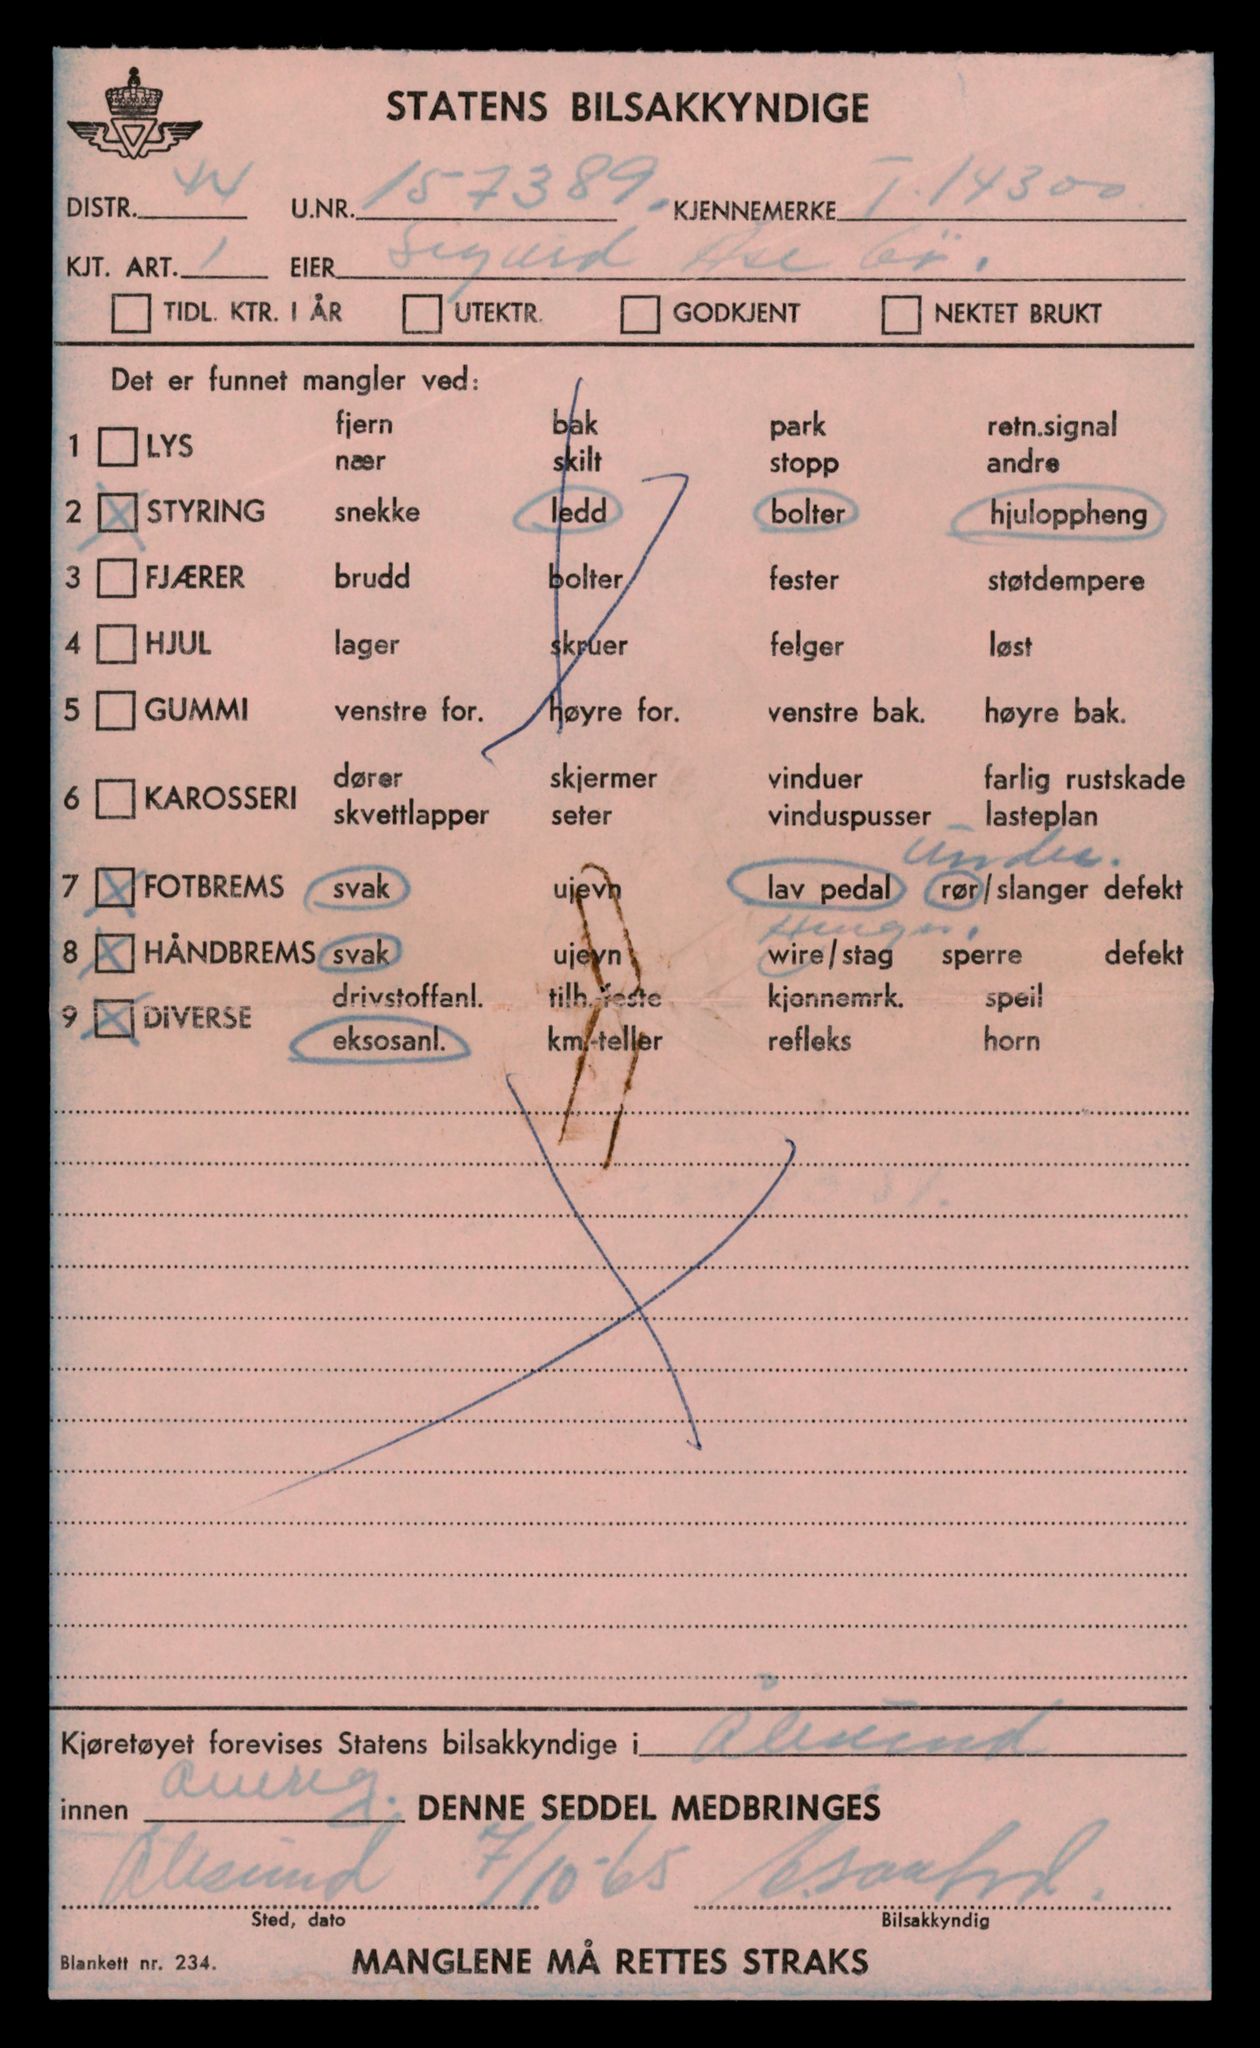 STATENS BILSAKKYNDIGE
DISTR. 44 U.NR. 157389. KJENNEMERKE T.14300
KJT. ART. 1 EIER Sigurd
TIDL. KTR. I ÅR UTEKTR. GODKJENT NEKTET BRUKT
Det er funnet mangler ved:
fjern bak park retn.signal
1 LYS
nær skilt stopp andre
2 STYRING snekke ledd bolter hjuloppheng
3 FJÆRER brudd bolter fester støtdempere
4 HJUL lager skruer felger løst
5 GUMMI venstre for. høyre for. venstre bak. høyre bak.
dører skjermer vinduer farlig rustskade
6 KAROSSERI
skvettlapper seter vinduspusser lasteplan
under.
7 FOTBREMS svak ujevn lav pedal rør/slanger defekt
henger.
8 HÅNDBREMS svak ujevn wire/stag sperre defekt
drivstoffanl. tilh.-feste kjennemrk. speil
9 DIVERSE
eksosanl. km.-teller refleks horn
Kjøretøyet forevises Statens bilsakkyndige i Ålesund
innen DENNE SEDDEL MEDBRINGES
Ålesund 7/10-65
Sted, dato Bilsakkyndig
Blankett nr. 234. MANGLENE MÅ RETTES STRAKS